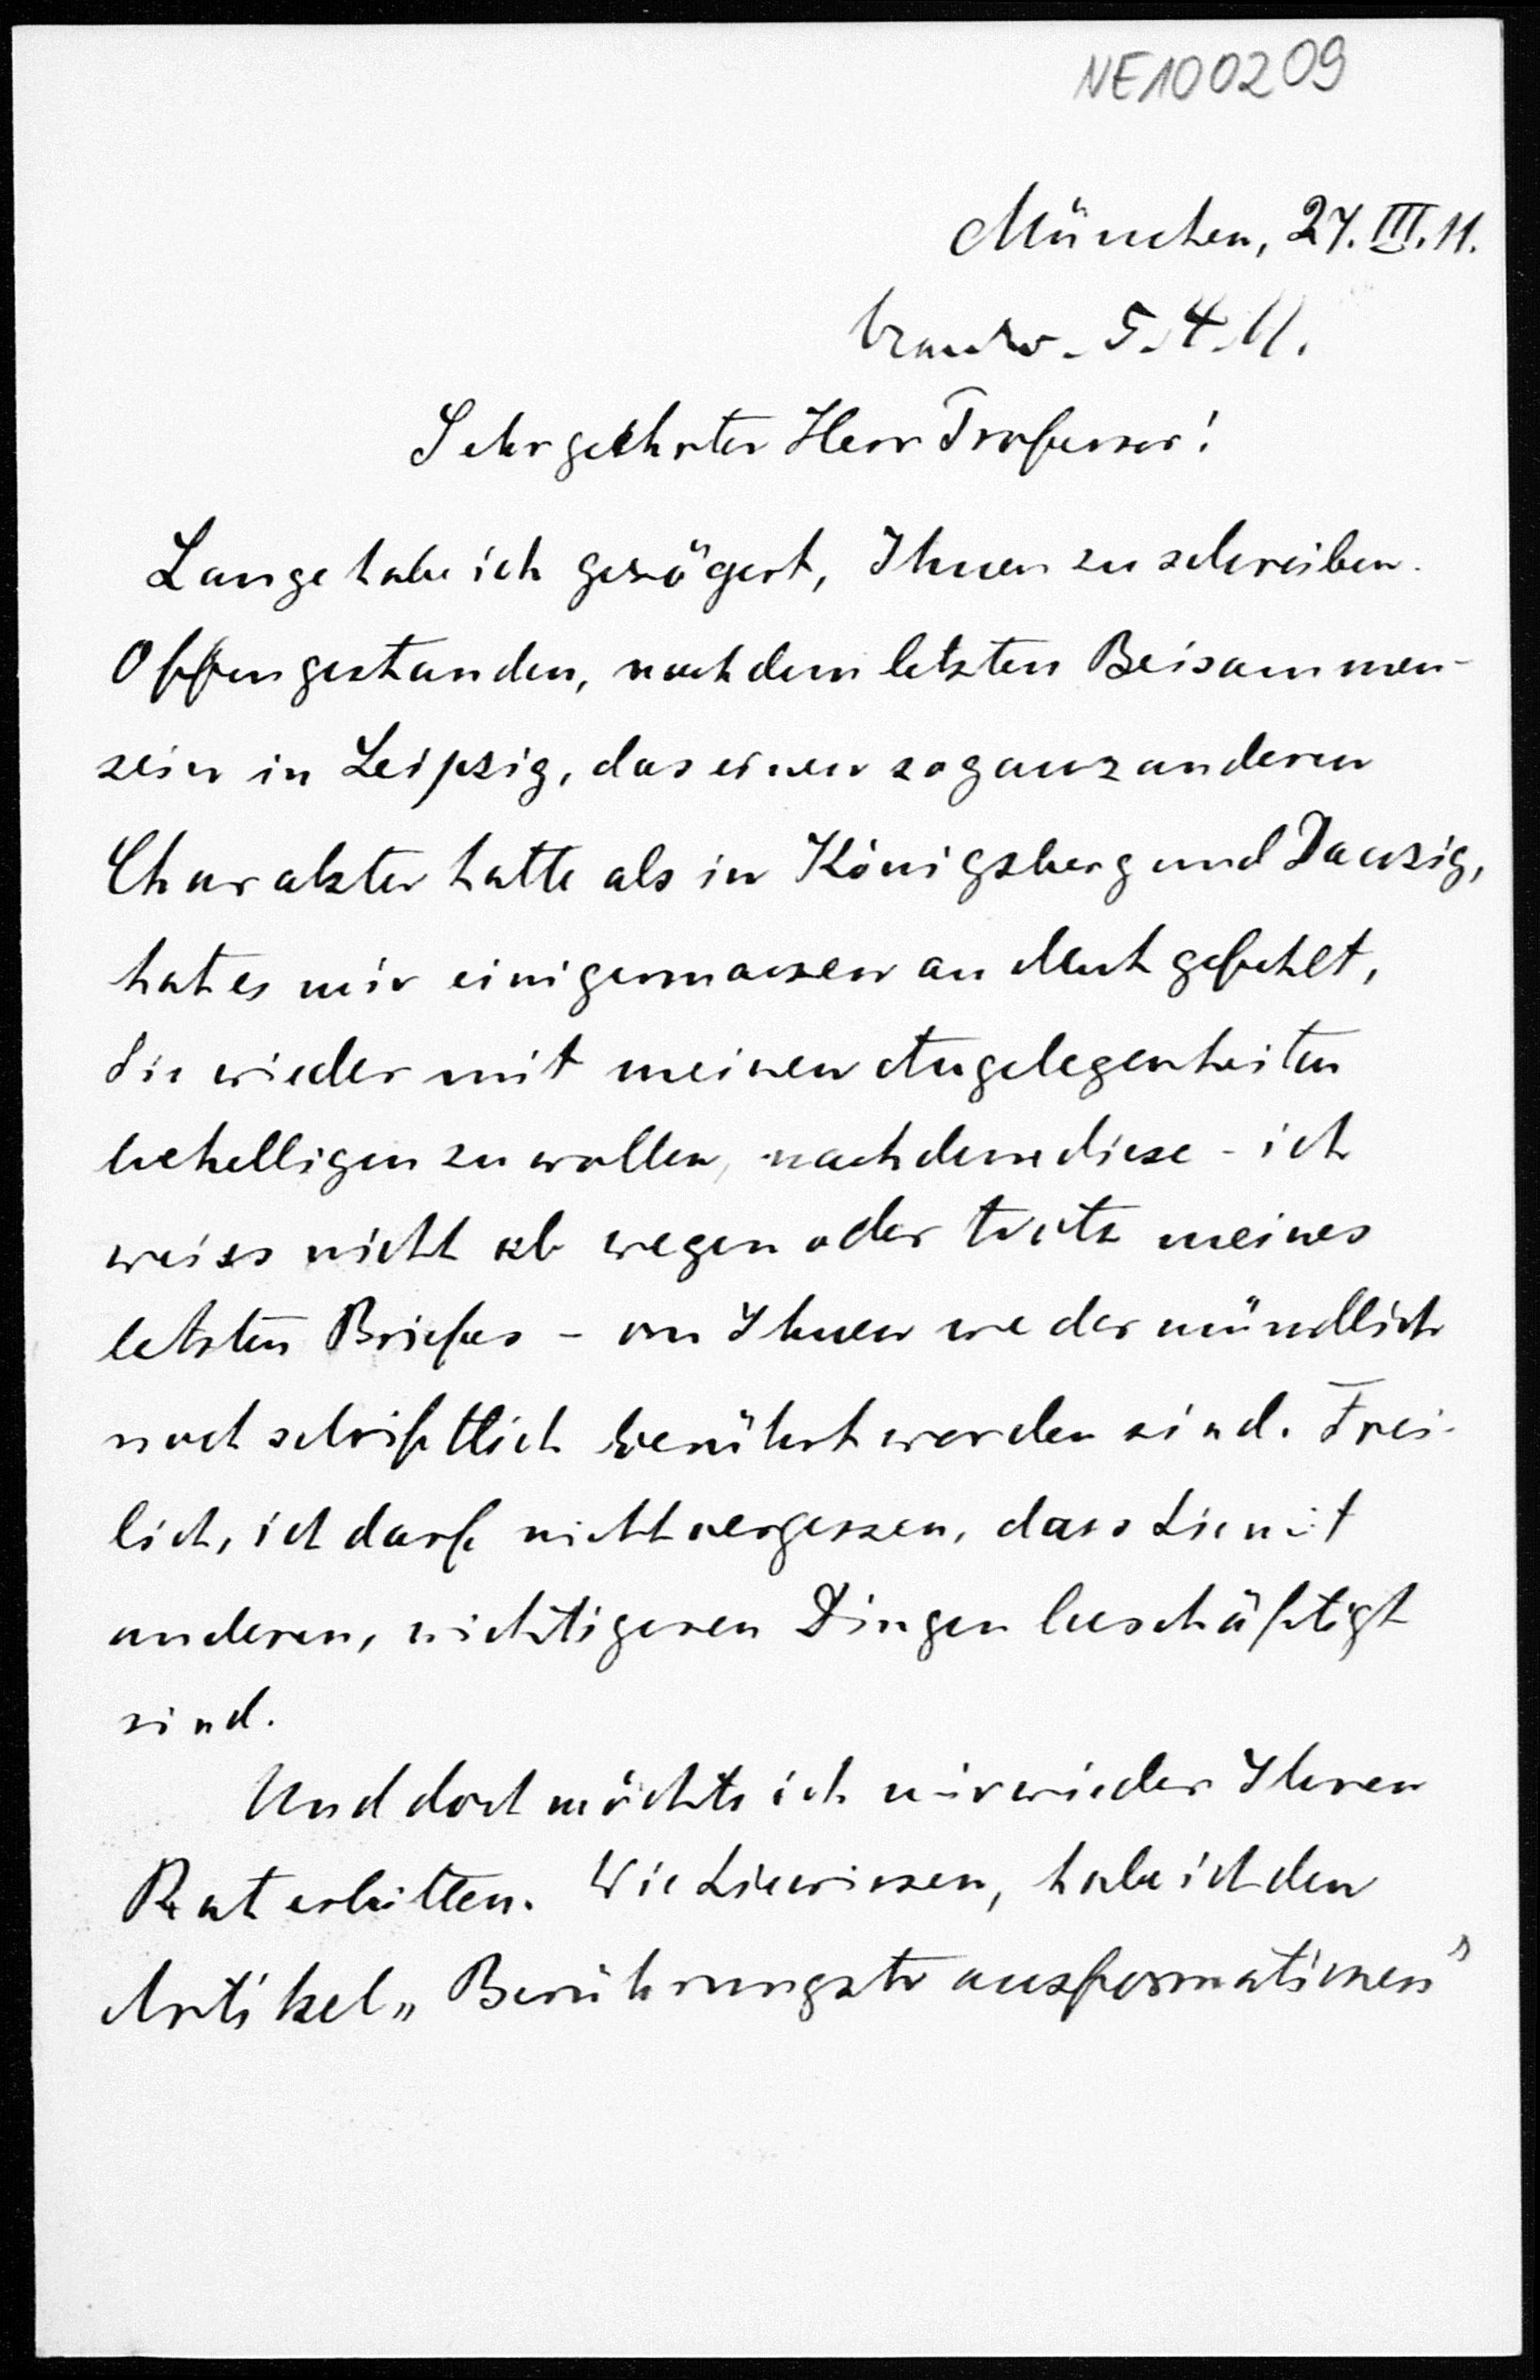 NE100209
München, 27. III. 11.
5. 4. 11.
Sehr geehrter Herr Professor!
Lange habe ich gezögert, Ihnen zu schreiben.
Offengestanden, nach dem letzten Beisammen-
sein in Leipzig, das einen so ganz anderen
Charakter hatte als in Königsberg und Danzig,
hat es mir einigermassen an Mut gefehlt,
Sie wieder mit meinen Angelegenheiten
behelligen zu wollen, nachdem diese - ich
weiss nicht ob wegen oder trotz meines
letzten Briefes - von Ihnen weder mündlich
noch schriftlich berührt worden sind. Frei-
lich, ich darf nicht vergessen, dass Sie mit
anderen, wichtigeren Dingen beschäftigt
sind.
Und doch möchte ich mir wieder Ihren
Rat erbitten. Wie Sie wissen, habe ich den
Artikel „Berührungstransformationen"